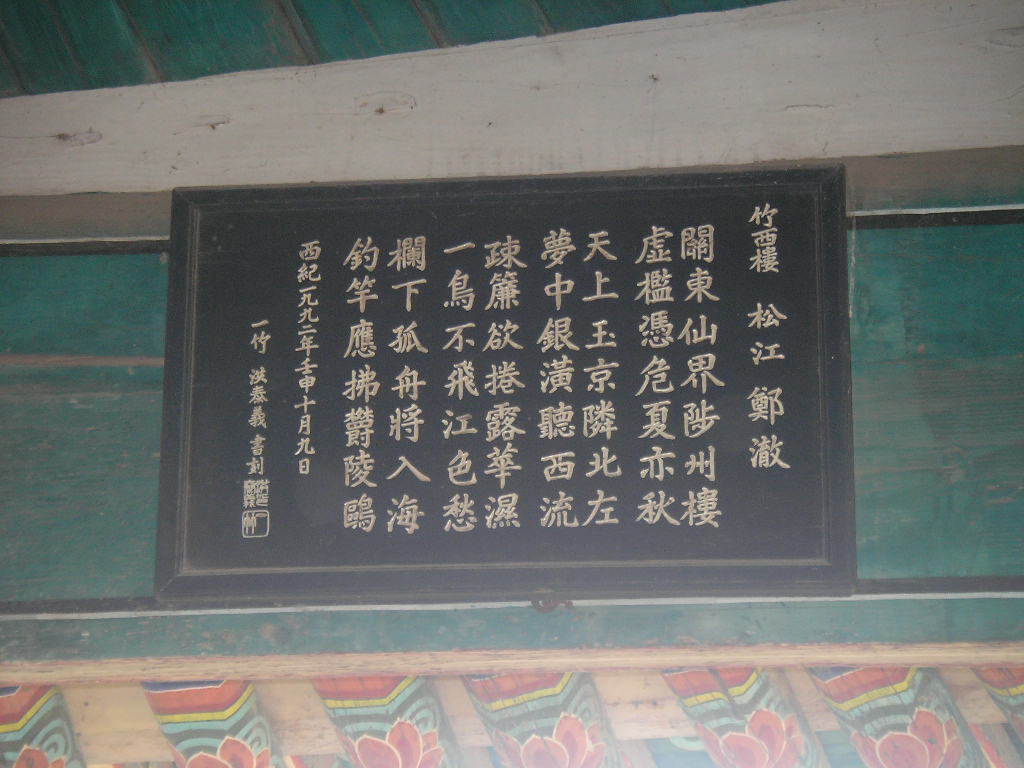 竹西樓 松江 鄭澈
關東仙界陟州樓
虛檻憑危夏亦秋
天上玉京隣北左
夢中銀潢聽西流
疎簾欲捲露華濕
一鳥不飛江色愁
欄下孤舟將入海
釣竿應拂鬱陵鷗
西紀一九九二年壬申十月九日
一竹 洪泰義 書刻